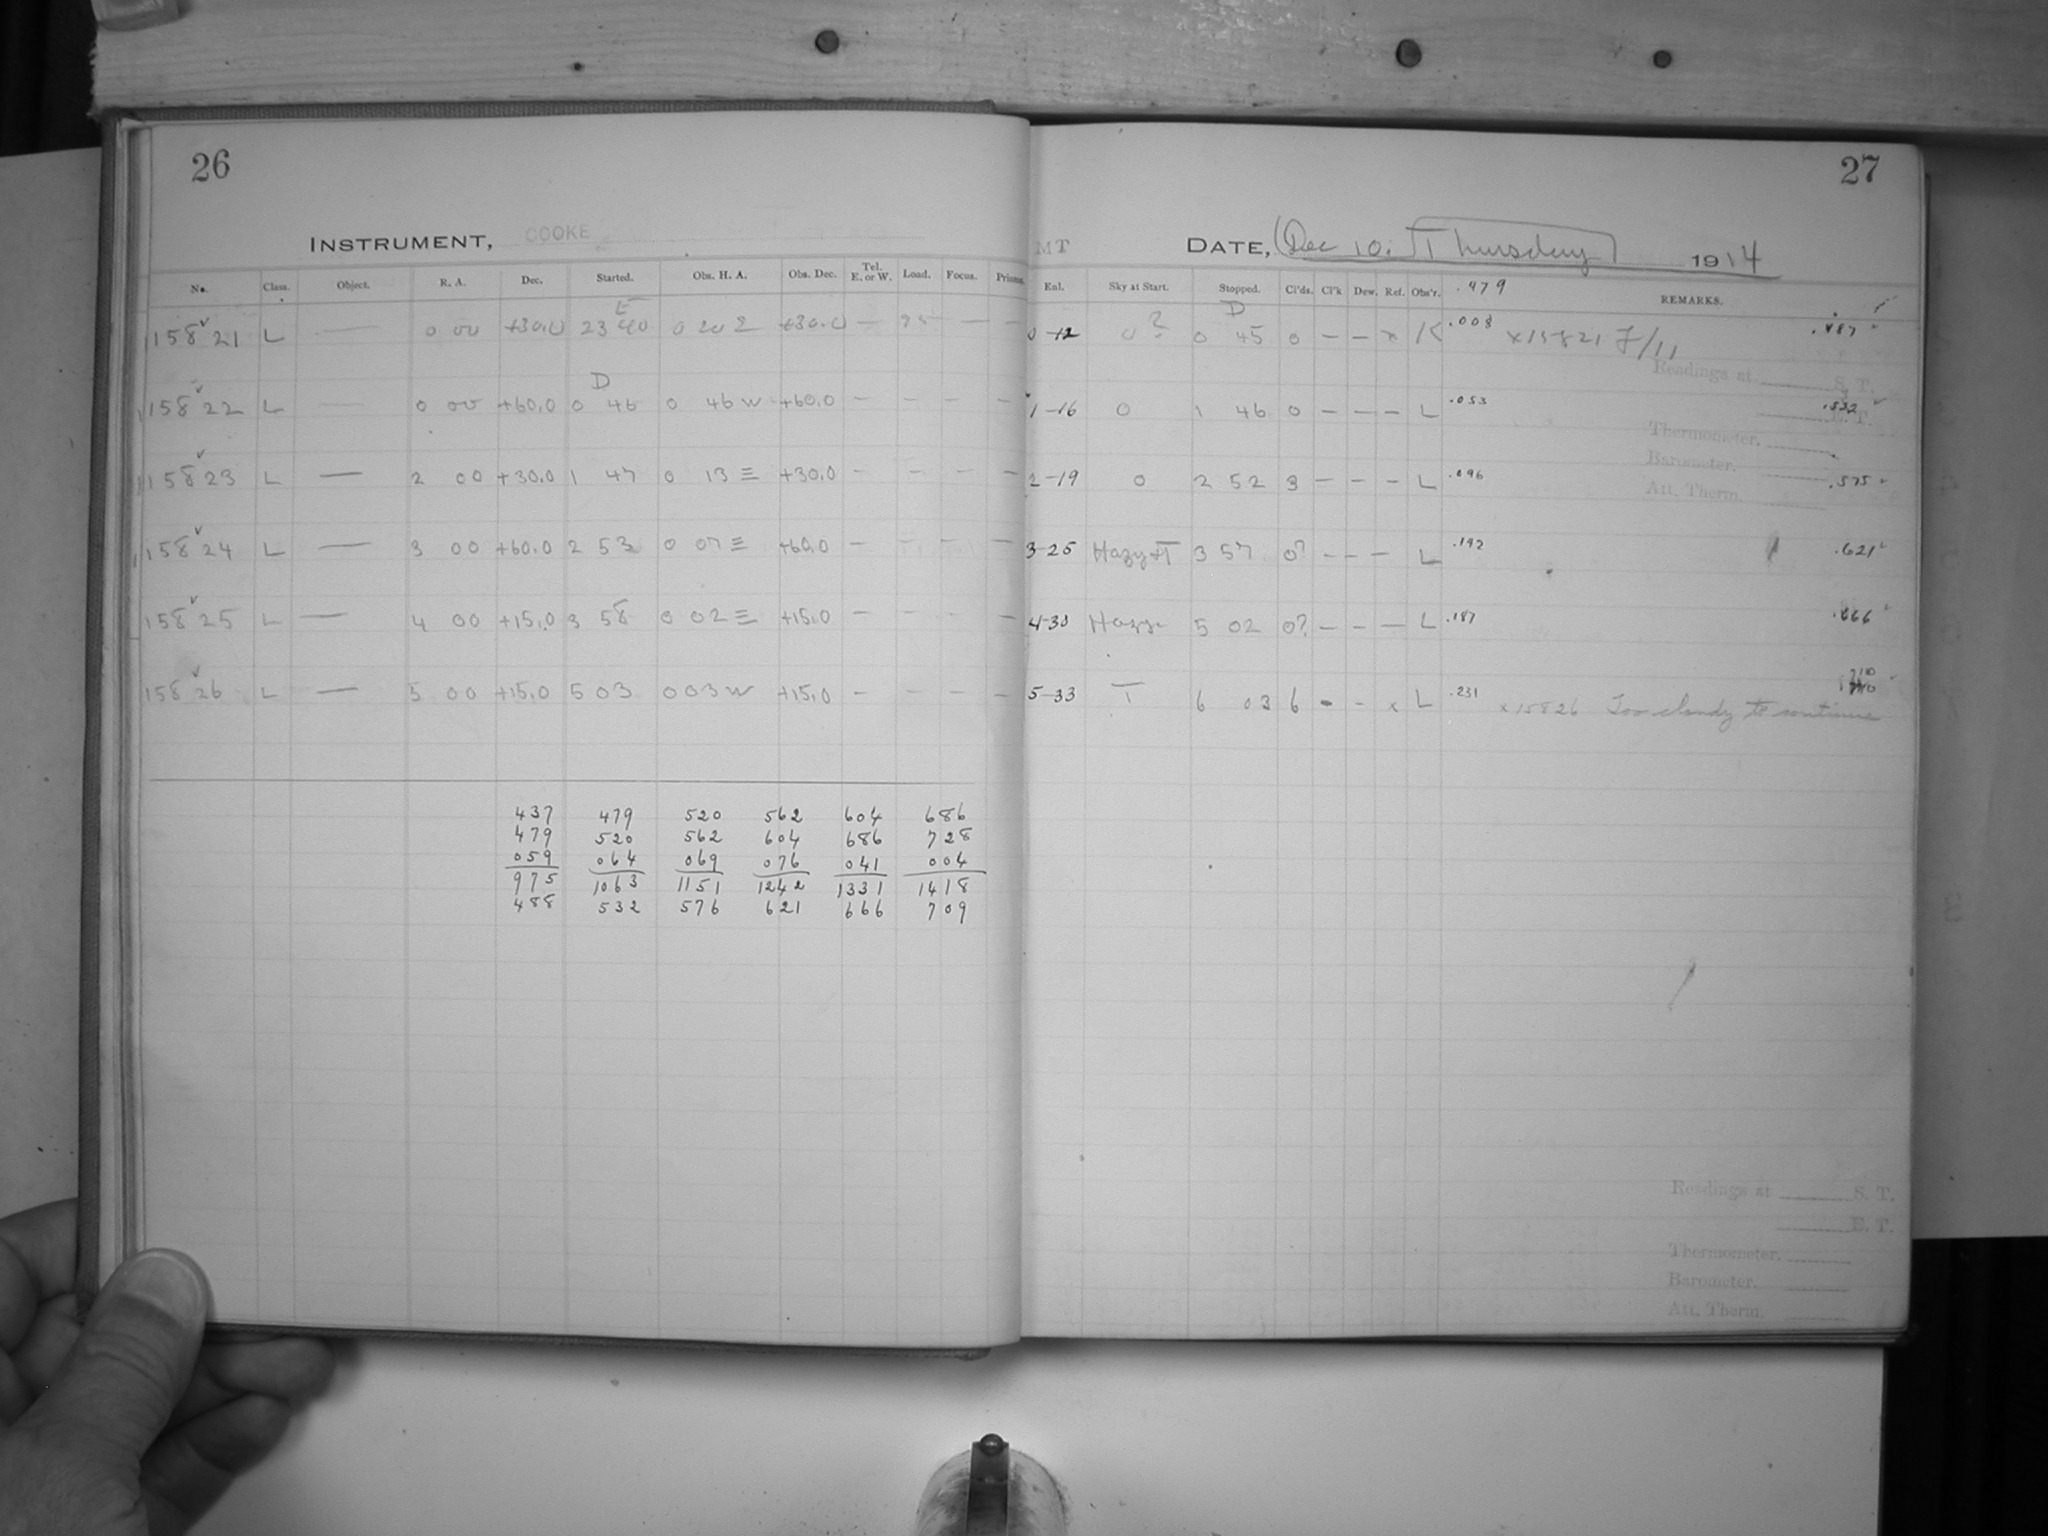 26
INSTRUMENT, COOKE
No. Class. Object. R. A. Dec. Started. Obs. H. A. Obs. Dec. Tel. E. or W. Load. Focus. Prisms.
E
15821 L — 0 00 +30.0 23 40 0 20 E +30.0 — 95 — —
D
15822 L — 0 00 +60.0 0 46 0 46 W +60.0 — — — —
15823 L — 2 00 +30.0 1 47 0 13 E +30.0 — — — —
15824 L — 3 00 +60.0 2 53 0 07 E +60.0 — — — —
15825 L — 4 00 +15.0 3 58 0 02 E +15.0 — — — —
15826 L — 5 00 +15.0 5 03 0 03 W +15.0 — — — —
437 479 520 562 604 686
479 520 562 604 686 728
059 064 069 076 041 004
975 1063 1151 1242 1331 1418
488 532 576 621 666 709
27
MT DATE, (Dec 10. Thursday) 1914
Enl. Sky at Start. Stopped. Cl'ds. Cl'k Dew. Ref. Obs'r. .479 REMARKS.
D
0-12 0? 0 45 0 — — x K .008 x15821 F/11 .487
Readings at S. T.
1-16 0 1 46 0 — — — L .053 .532
E. T.
Thermometer.
Barometer.
2-19 0 2 52 3 — — — L .096 .575
Att. Therm.
3-25 Hazy+T 3 57 0? — — — L .142 .621
4-30 Hazy 5 02 0? — — — L .187 .666
5-33 T 6 03 6 - - x L .231 x15826 Too cloudy to continue 710
Readings at S. T.
E. T.
Thermometer.
Barometer.
Att. Therm.